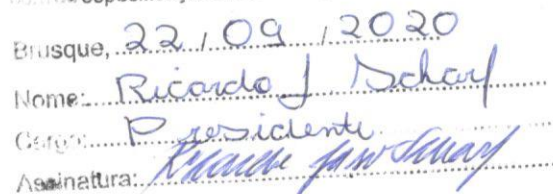 Brusque, 22 / 09 / 2020
Nome: Ricardo J Scharf
Cargo: Presidente
Assinatura: Ricardo